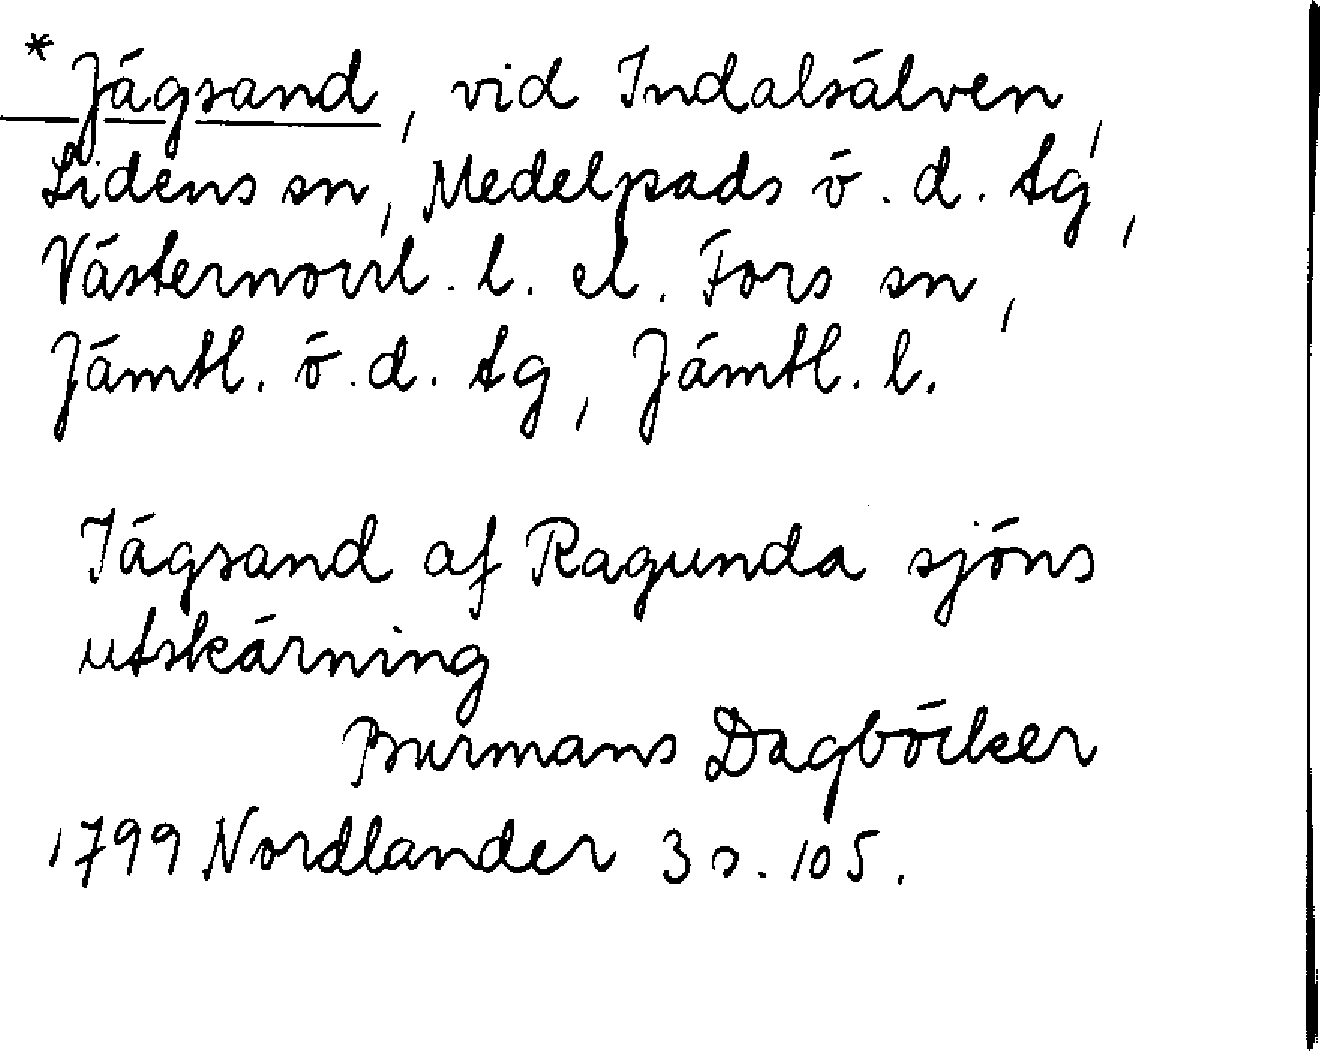 * Jägsand, vid Indalsälven,
Lidens sn, Medelpads ö. d. tg,
Västernorrl. l. el. Fors sn,
Jämtl. ö. d. tg, Jämtl. l.
Jägsand af Ragunda sjöns
utskärning
Burmans Dagböcker
1799 Nordlander 3 s. 105.